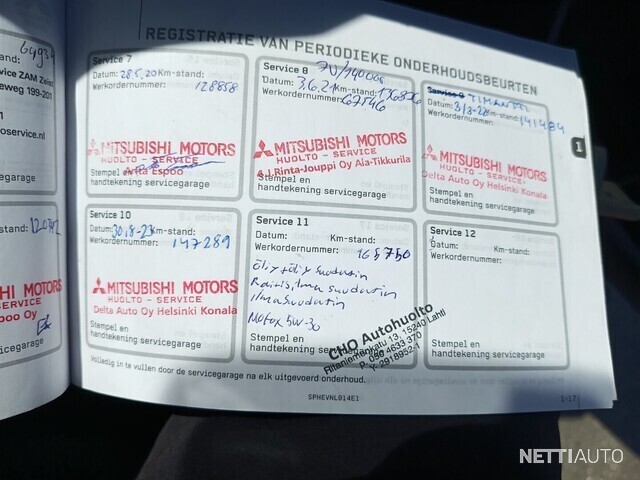 REGISTRATIE VAN PERIODIEKE ONDERHOUDSBEURTEN
Service 7
Datum: 28.5.20 Km-stand:
Werkordernummer: 128858
MITSUBISHI MOTORS
HUOLTO - SERVICE
Arita Espoo
Stempel en
handtekening servicegarage
Service 8
Datum: 3.6.21 Km-stand: 136836
Werkordernummer: 67546
MITSUBISHI MOTORS
HUOLTO - SERVICE
J.Rinta-Jouppi Oy Ala-Tikkurila
Stempel en
handtekening servicegarage
Service 9
Datum: 3/3-22 Km-stand: 141484
Werkordernummer:
MITSUBISHI MOTORS
HUOLTO - SERVICE
Delta Auto Oy Helsinki Konala
Stempel en
handtekening servicegarage
1
Service 10
Datum: 30.8-23 Km-stand:
Werkordernummer: 147289
MITSUBISHI MOTORS
HUOLTO - SERVICE
Delta Auto Oy Helsinki Konala
Stempel en
handtekening servicegarage
Service 11
Datum: Km-stand:
Werkordernummer: 165750
Raitisilmasuodatin
ilmasuodatin
Motox 5W-30
Stempel en
handtekening
CHO Autohuolto
Ritaniemenkatu 13, 15240 Lahti
P. 050 4633 370
Y: 2918952-1
Service 12
Datum: Km-stand:
Werkordernummer:
Stempel en
handtekening servicegarage
Volledig in te vullen door de servicegarage na elk uitgevoerd onderhoud.
SPHEVNL014E1
1-17
rvice ZAM
eweg 199-201
oservice.nl
garage
stand:
SHI MOTORS
SERVICE
poo Oy
icegarage
NETTIAUTO